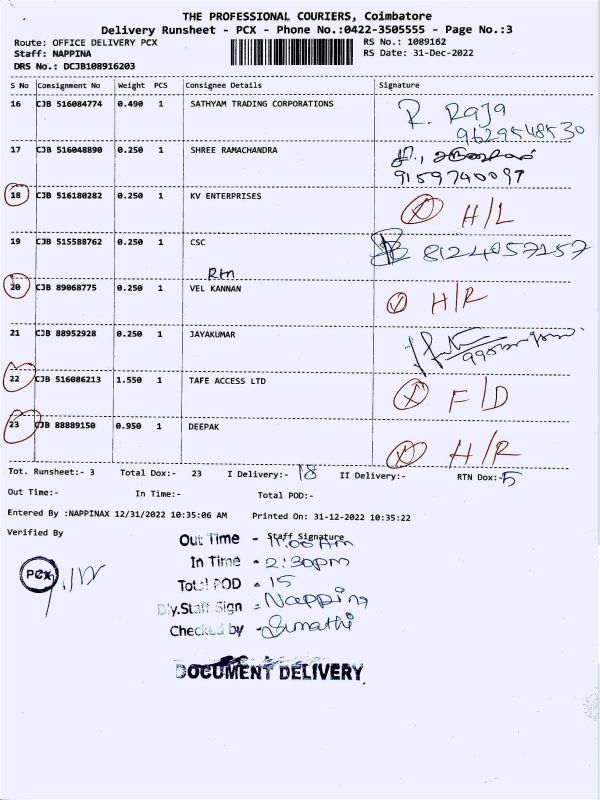 THE PROFESSIONAL COURIERS, Coimbatore
Delivery Runsheet - PCX - Phone No.:0422-3505555 - Page No.:3
Route: OFFICE DELIVERY PCX RS No.: 1089162
Staff: NAPPINA RS Date: 31-Dec-2022
DRS No.: DCJB108916203
S No Consignment No Weight PCS Consignee Details Signature
16 CJB 516084774 0.490 1 SATHYAM TRADING CORPORATIONS R. Raja
9629548530
17 CJB 516048890 0.250 1 SHREE RAMACHANDRA
9159740097
18 CJB 516180282 0.250 1 KV ENTERPRISES H/L
19 CJB 515588762 0.250 1 CSC 8124057157
Rtn
20 CJB 89068775 0.250 1 VEL KANNAN H/R
21 CJB 88952928 0.250 1 JAYAKUMAR
22 CJB 516086213 1.550 1 TAFE ACCESS LTD F/D
23 CJB 88889150 0.950 1 DEEPAK H/R
Tot. Runsheet:- 3 Total Dox:- 23 I Delivery:- 18 II Delivery:- RTN Dox:- 5
Out Time:- In Time:- Total POD:-
Entered By :NAPPINAX 12/31/2022 10:35:06 AM Printed On: 31-12-2022 10:35:22
Verified By Staff Signature
Out Time - 11.00 Am
In Time - 2:30pm
PCX
Total POD - 15
Dly.Staff Sign - Nappina
Checked by - Sumathi
DOCUMENT DELIVERY